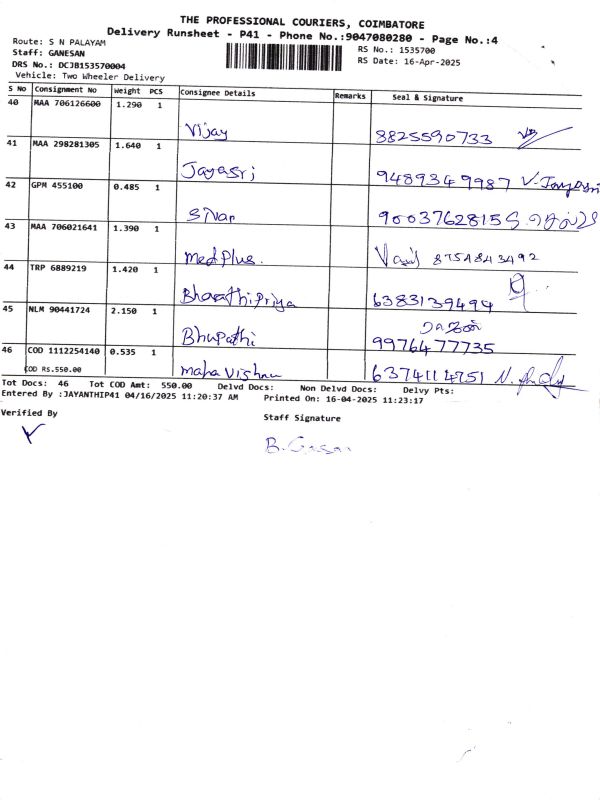 THE PROFESSIONAL COURIERS, COIMBATORE
Delivery Runsheet - P41 - Phone No.:9047080280 - Page No.:4
Route: S N PALAYAM
RS No.: 1535700
Staff: GANESAN
RS Date: 16-Apr-2025
DRS No.: DCJB153570004
Vehicle: Two Wheeler Delivery
S No Consignment No Weight PCS Consignee Details Remarks Seal & Signature
40 MAA 706126600 1.290 1
Vijay 8825590733
41 MAA 298281305 1.640 1
Jayasri 9489349987 V. Jayasri
42 GPM 455100 0.485 1
Sivan 9003762815
43 MAA 706021641 1.390 1
Medplus. 8754843492
44 TRP 6889219 1.420 1
Bharathipriya 6383139494
45 NLM 90441724 2.150 1
Bhupathi 9976477735
46 COD 1112254140 0.535 1
COD RS.550.00 maha vishnu 6374114751
Tot Docs: 46 Tot COD Amt: 550.00 Delvd Docs: Non Delvd Docs: Delvy Pts:
Entered By :JAYANTHIP41 04/16/2025 11:20:37 AM Printed On: 16-04-2025 11:23:17
Verified By
Staff Signature